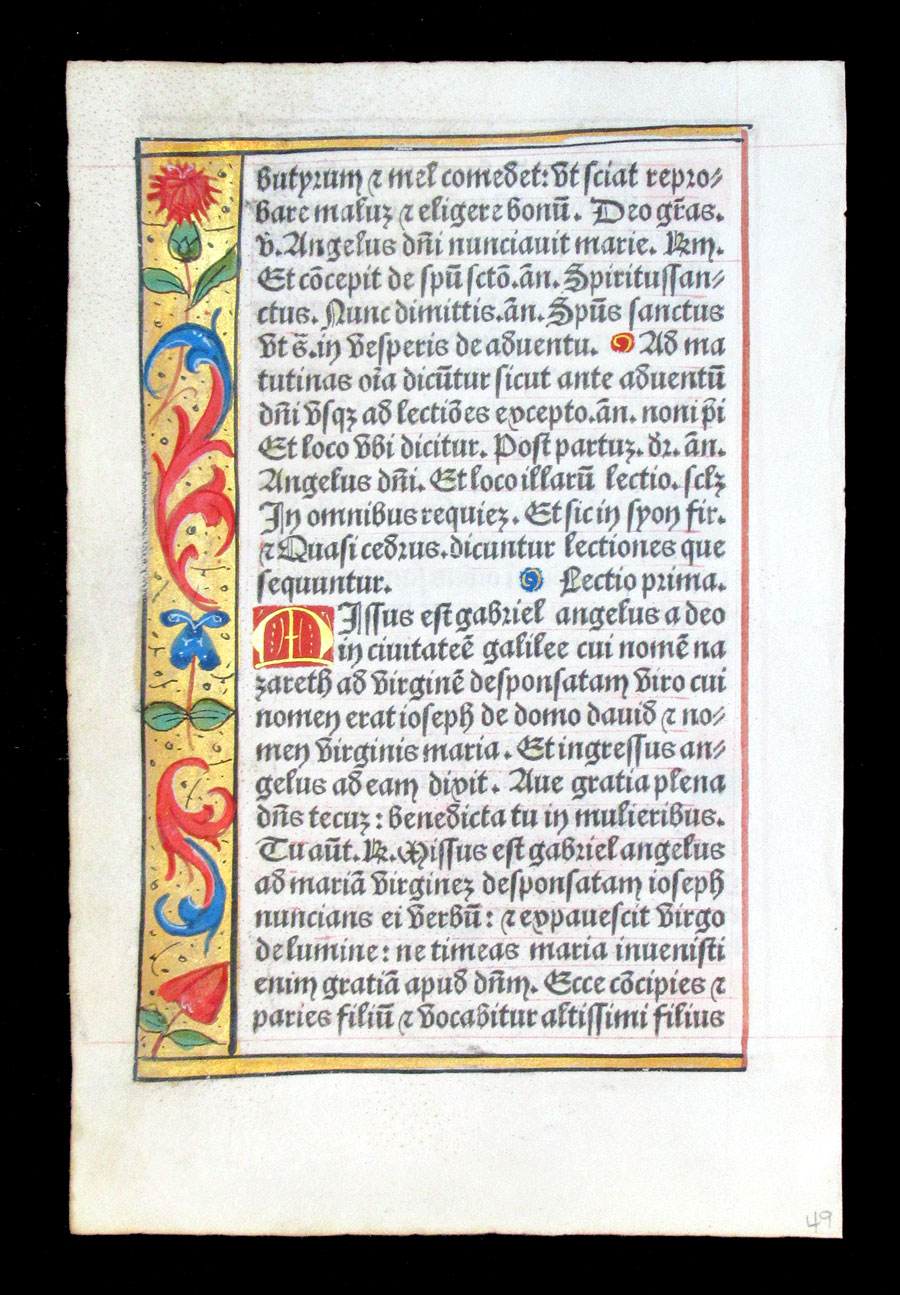 butyrum ⁊ mel comedet: vt sciat repro⸗
bare maluz ⁊ eligere bonū. Deo grās.
v̄. Angelus dn̄i nunciauit marie. R̄m.
Et cōcepit de spū sctō. an̄. Spiritussan⸗
ctus. Nunc dimittis. an̄. Spūs sanctus
vt s̄. in vesperis de aduentu. Ad ma
tutinas oīa dicūtur sicut ante aduentū
dn̄i vsqz ad lectiōes excepto. an̄. noni p̄i
Et loco vbi dicitur. Post partuz. dr̄. an̄.
Angelus dn̄i. Et loco illarū lectio. sclz
In omnibus requiez. Et sic in syon fir.
⁊ Quasi cedrus. dicuntur lectiones que
sequuntur. Lectio prima.
MIssus est gabriel angelus a deo
in ciuitateē galilee cui nomē na
zareth ad virginē desponsatam viro cui
nomen erat ioseph de domo dauid ⁊ no⸗
men virginis maria. Et ingressus an⸗
gelus ad eam dixit. Aue gratia plena
dn̄s tecuz: benedicta tu in mulieribus.
Tu aūt. R̄. Missus est gabriel angelus
ad mariā virginez desponsatam ioseph
nuncians ei verbū: ⁊ expauescit virgo
de lumine: ne timeas maria inuenisti
enim gratiā apud dn̄m. Ecce cōcipies ⁊
paries filiū ⁊ vocabitur altissimi filius
49